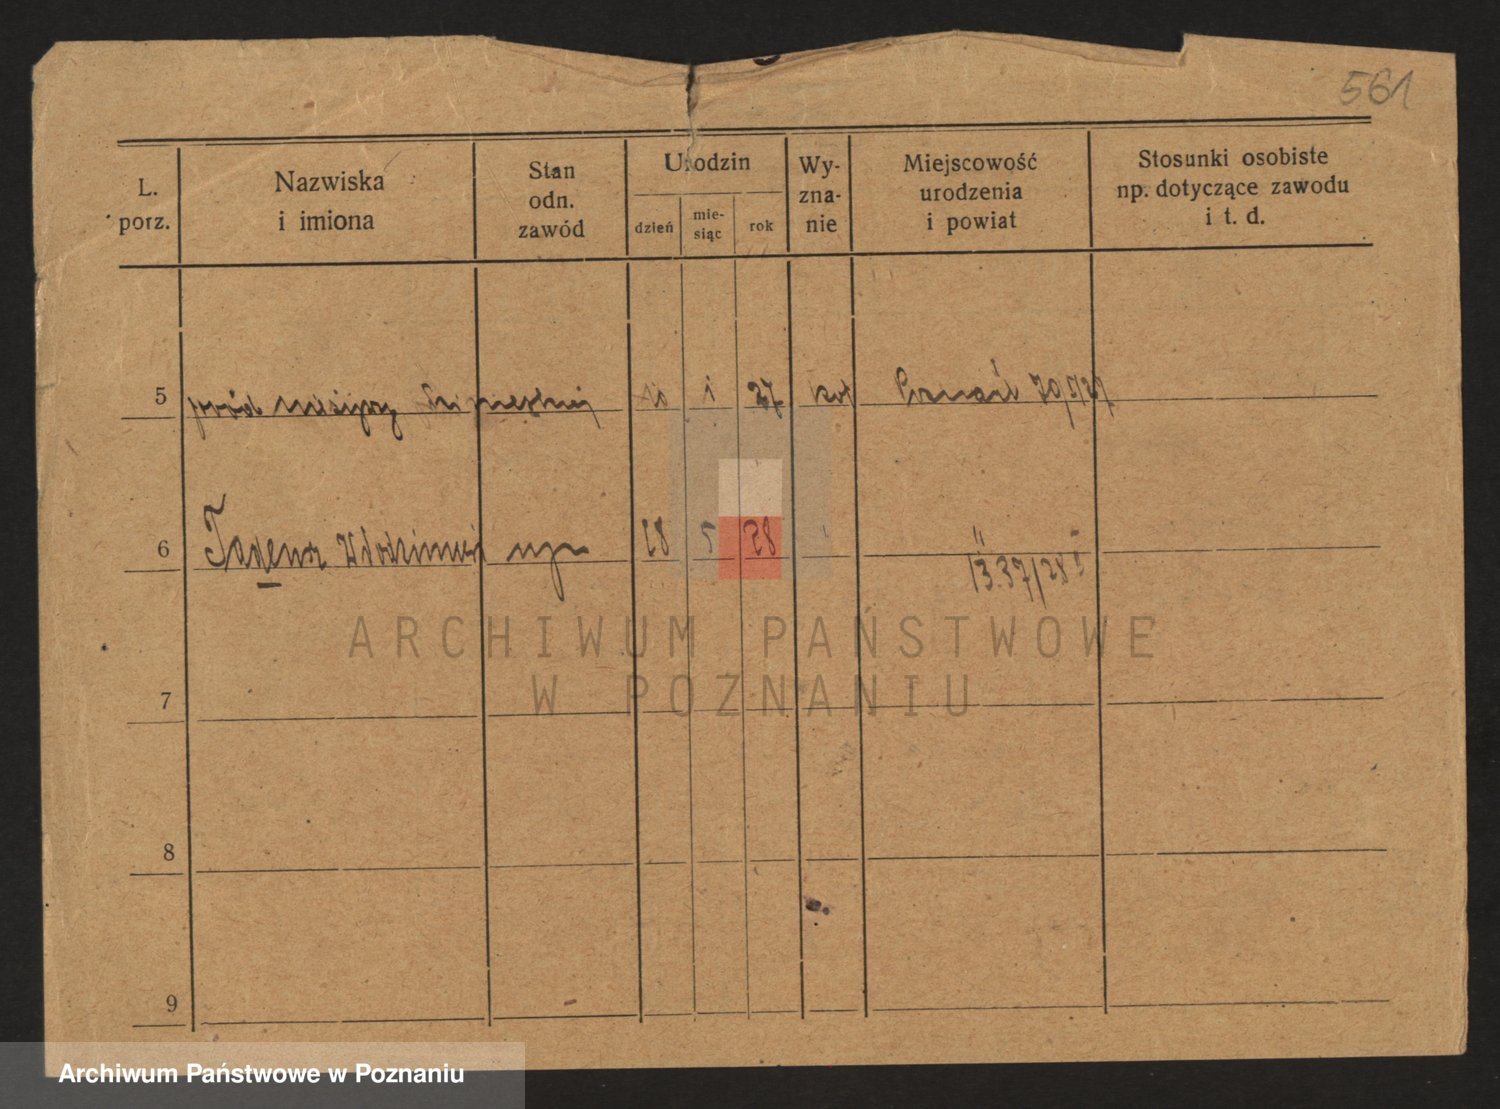 561
L. porz.
Nazwiska i imiona
Stan odn. zawód
Urodzin
dzień
mie-
siąc
rok
Wy-
zna-
nie
Miejscowość urodzenia i powiat
Stosunki osobiste np. dotyczące zawodu i t. d.
5 poród 1 27 kat Poznań 70/27
6 Tadeusz Włodzimierz syn 28 5 28 13.37/28
7
8
9
ARCHIWUM PAŃSTWOWE
W POZNANIU
Archiwum Państwowe w Poznaniu